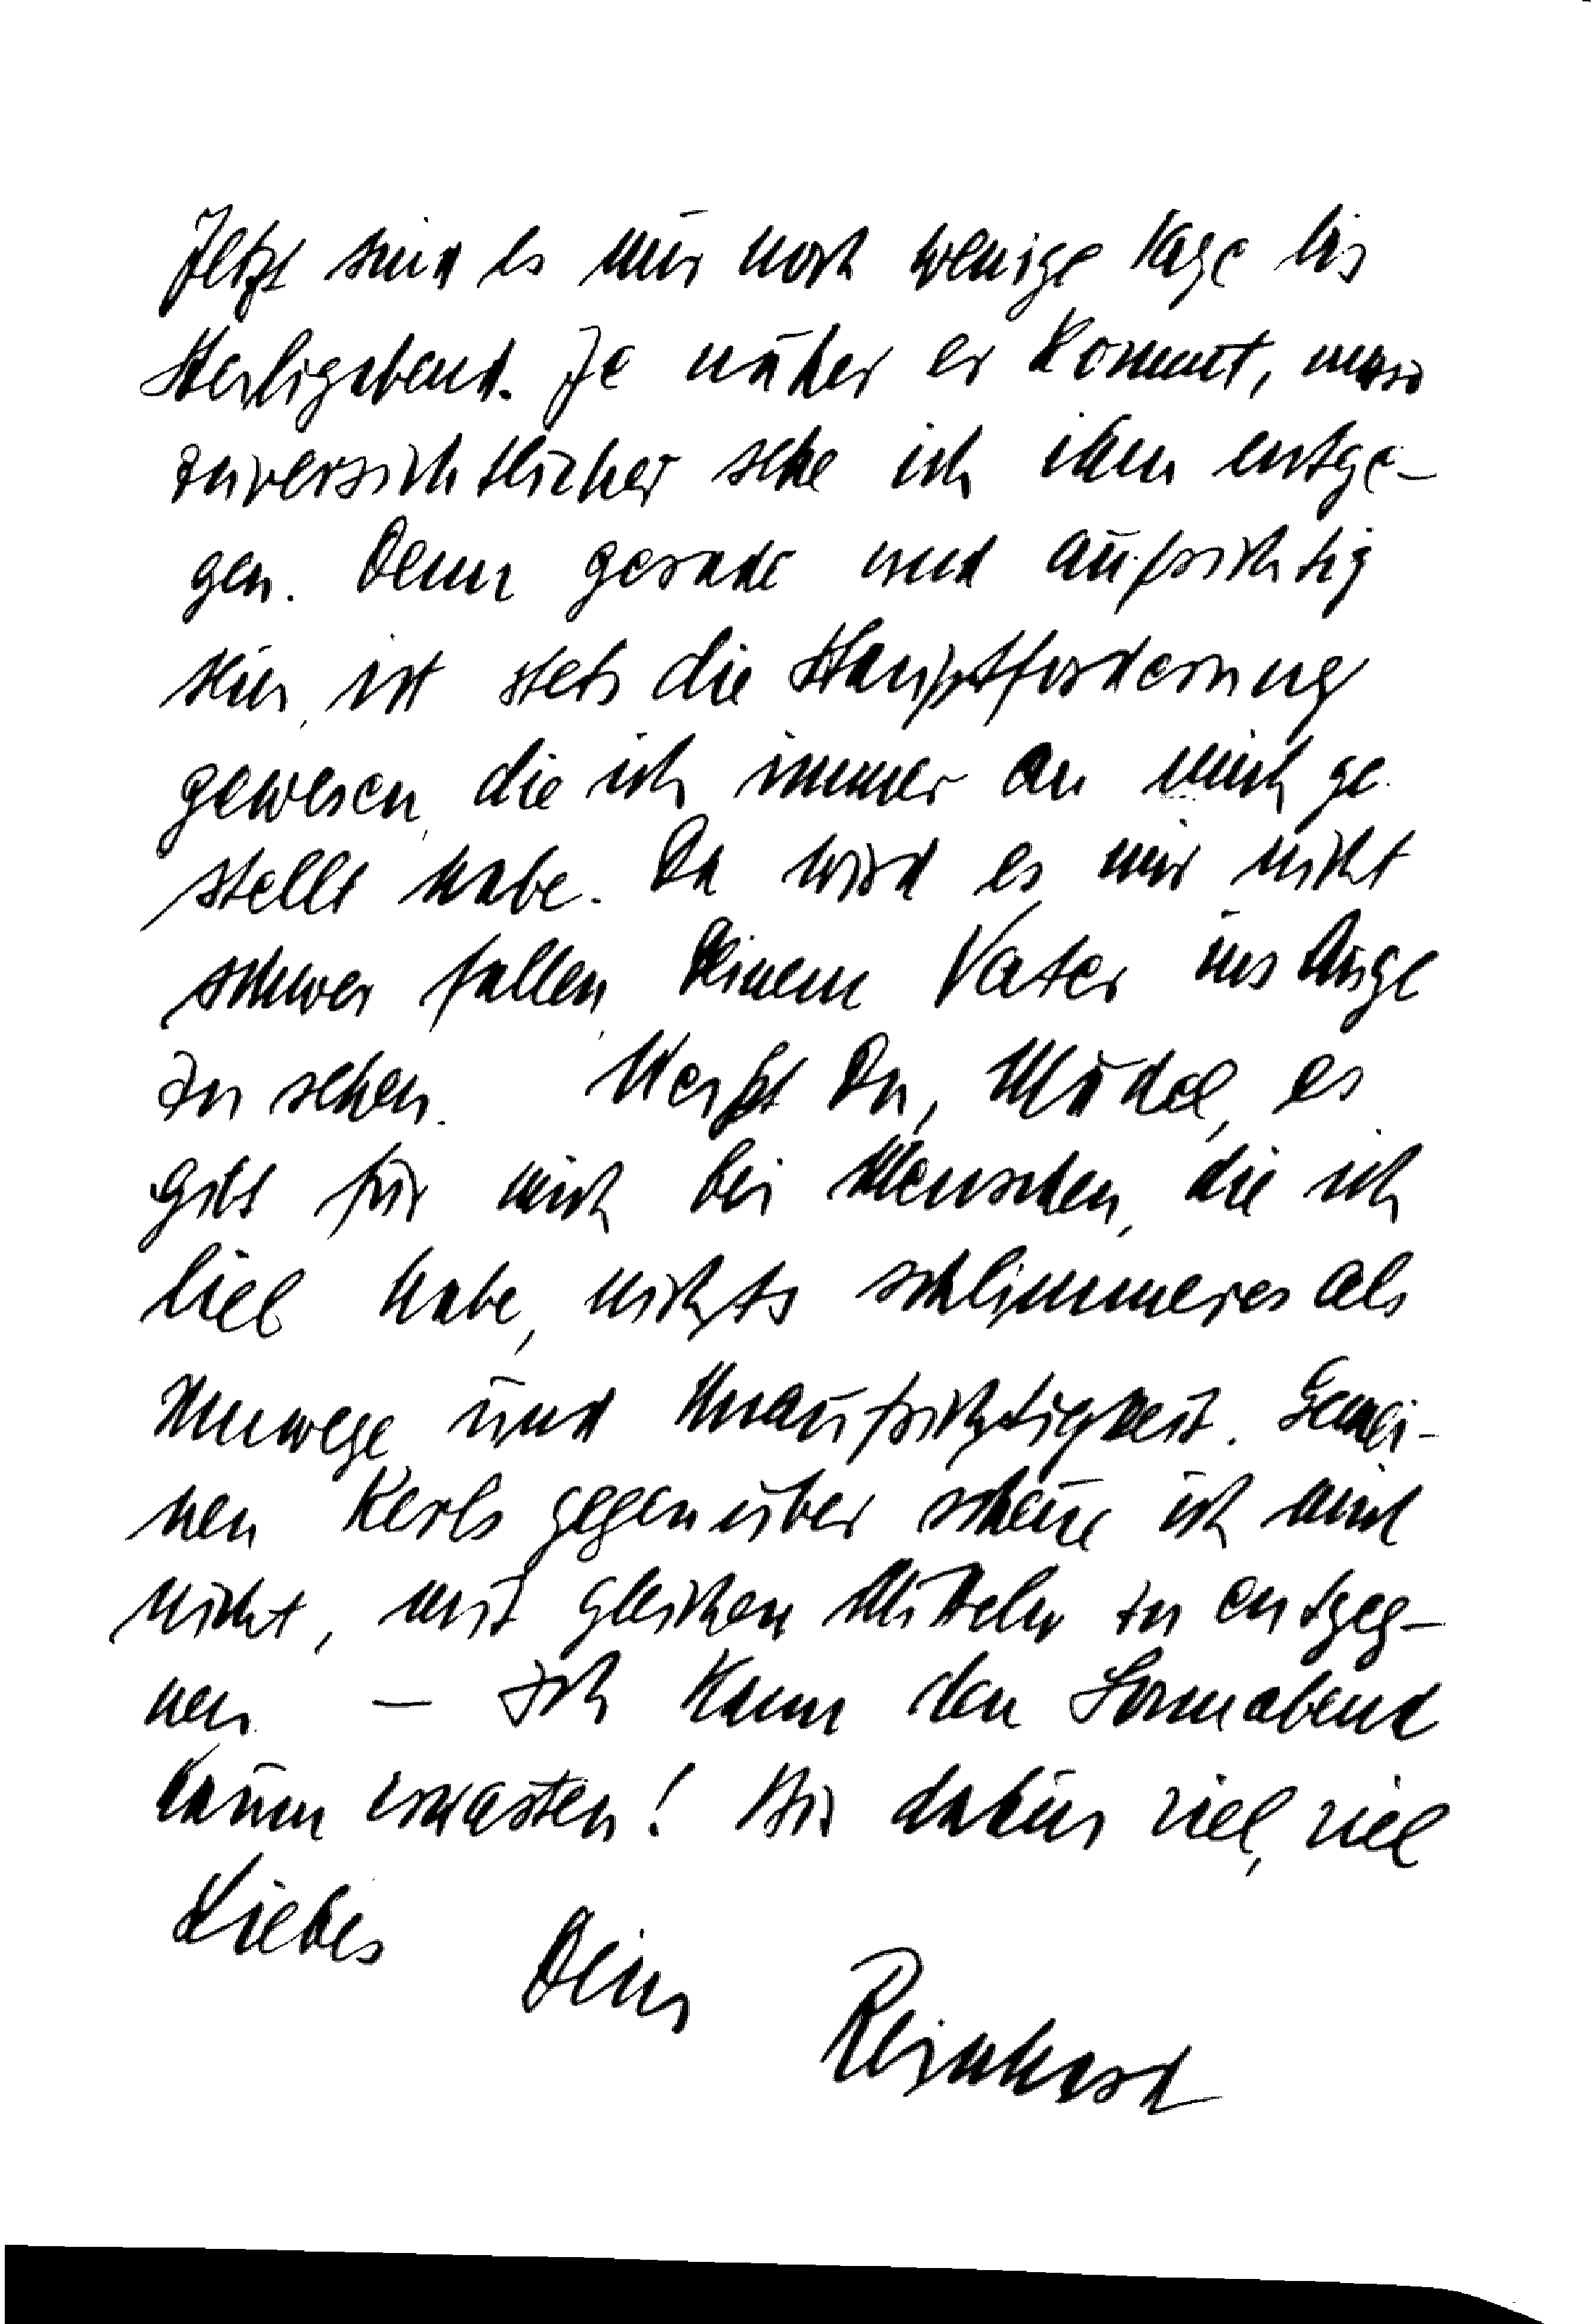 Jetzt sind es nur noch wenige Tage bis
Heiligabend. Je näher er kommt, umso
zuversichtlicher sehe ich ihm entge-
gen. Denn gerade und aufrichtig
sein, ist stets die Hauptforderung
gewesen, die ich immer an mich ge-
stellt habe. Da wird es mir nicht
schwer fallen, Deinem Vater ins Auge
zu sehen. Weißt Du, Mädel, es
gibt für mich bei Menschen, die ich
lieb habe, nichts schlimmeres als
Umwege und Unaufrichtigkeit. Gemei-
nen Kerls gegenüber scheue ich mich
nicht, mit gleichen Mitteln zu entgeg-
nen. – Ich kann den Sonnabend
kaum erwarten! Bis dahin viel, viel
Liebes
Dein
Reinhard